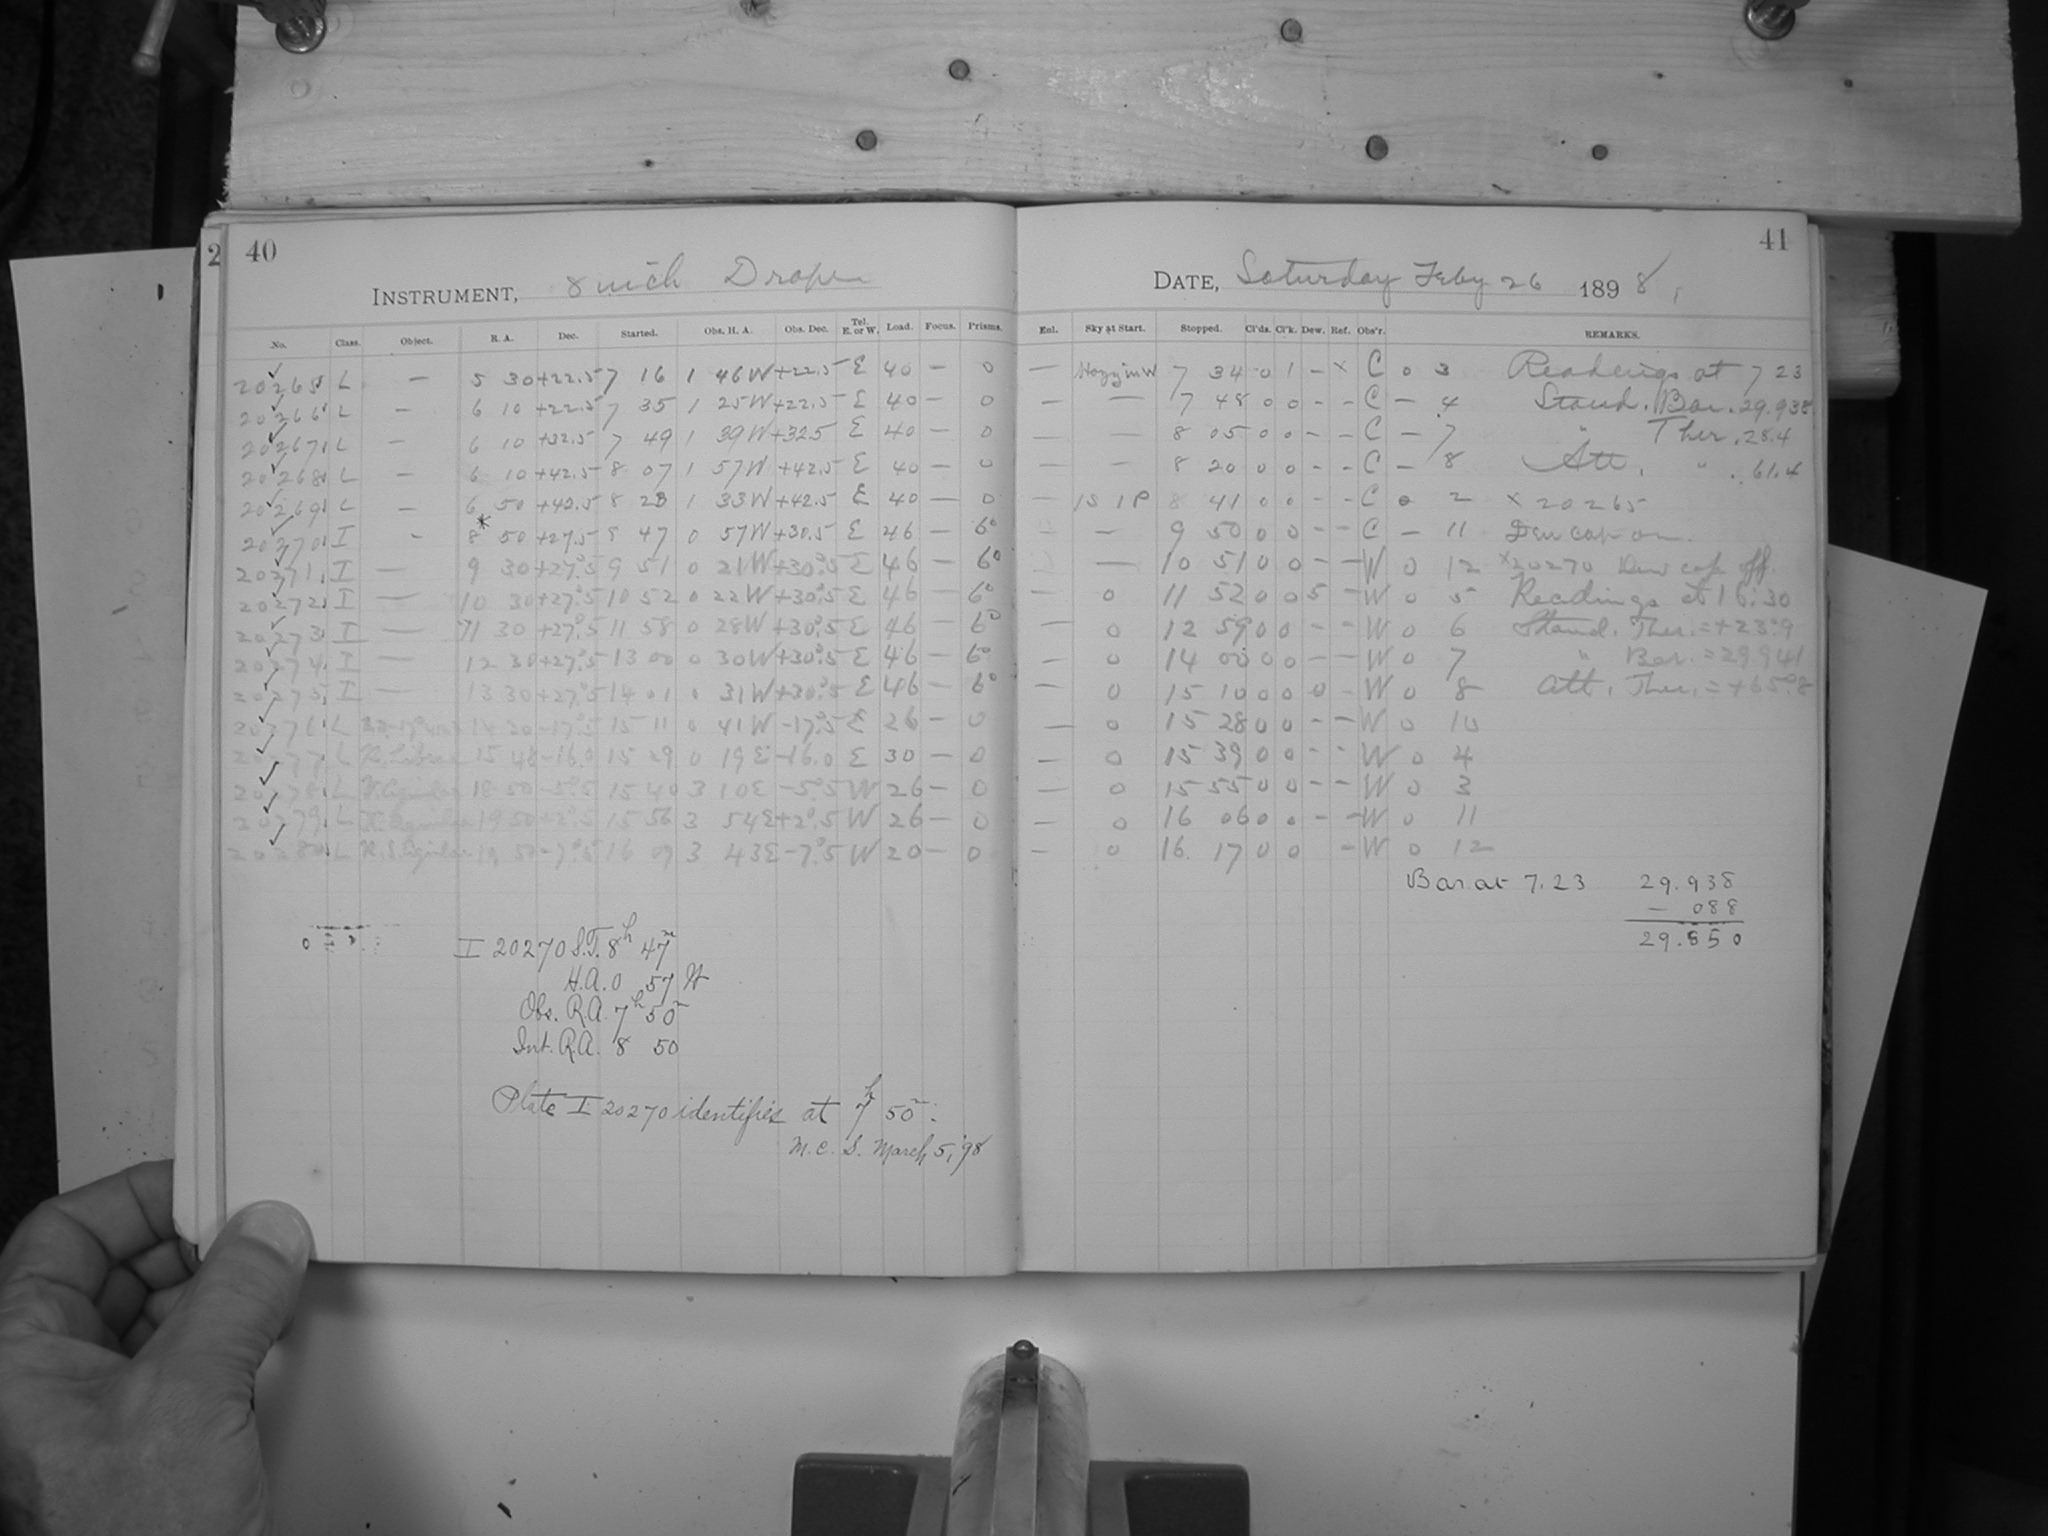 2 40
INSTRUMENT, 8 inch Draper
No. Class. Object. R. A. Dec. Started. Obs. H. A. Obs. Dec. Tel. E. or W. Load. Focus. Prisms.
20265 L — 5 30 +22.5 7 16 1 46 W +22.5 E 40 — 0
20266 L — 6 10 +22.5 7 35 1 25 W +22.5 E 40 — 0
20267 L — 6 10 +32.5 7 49 1 39 W +32.5 E 40 — 0
20268 L — 6 10 +42.5 8 07 1 57 W +42.5 E 40 — 0
20269 L — 6 50 +42.5 8 23 1 33 W +42.5 E 40 — 0
20270 I - 8* 50 +27.5 8 47 0 57 W +30.5 E 46 — 6°
20271 I — 9 30 +27°.5 9 51 0 21 W +30°.5 E 46 — 6°
20272 I — 10 30 +27°.5 10 52 0 22 W +30°.5 E 46 — 6°
20273 I — 11 30 +27°.5 11 58 0 28 W +30°.5 E 46 — 6°
20274 I — 12 30 +27°.5 13 00 0 30 W +30°.5 E 46 — 6°
20275 I — 13 30 +27°.5 14 01 0 31 W +30°.5 E 46 — 6°
20276 L 14 20 -17°.5 15 11 0 41 W -17°.5 E 26 — 0
20277 L Librae 15 48 -16.0 15 29 0 19 E -16.0 E 30 — 0
20278 L Aquilae 18 50 -5°.5 15 40 3 10 E -5°.5 W 26 — 0
20279 L Aquilae 19 50 +2°.5 15 56 3 54 E +2°.5 W 26 — 0
20280 L Aquilae 19 50 -7°.5 16 07 3 43 E -7°.5 W 20 — 0
I 20270 S.T. 8h 47m
H.A. 0 57 W
Obs. R.A. 7h 50m
Int. R.A. 8 50
Plate I 20270 identifies at 7h 50m.
M. C. S. March 5, '98
41
DATE, Saturday Feby 26 1898,
Enl. Sky at Start. Stopped. Cl'ds. Cl'k. Dew. Ref. Obs'r. REMARKS.
— Hazy in W 7 34 0 1 — x C 0 3 Readings at 7 23
— — 7 48 0 0 - - C — 4 Stand. Bar. 29.938
— — 8 05 0 0 - - C — 7 " Ther. 28.4
— — 8 20 0 0 - - C — 8 Att. " 61.4
— 1S 1P 8 41 0 0 - - C 0 2 x 20265
— — 9 50 0 0 - - C — 11 Dew cap on
— — 10 51 0 0 - - W 0 12 x20270 Dew cap off.
— 0 11 52 0 0 5 - W 0 5 Readings at 16:30
— 0 12 59 0 0 - - W 0 6 Stand. Ther. = +23°.9
— 0 14 00 0 0 - - W 0 7 " Bar. = 29.941
— 0 15 10 0 0 0 - W 0 8 Att. Ther. = +65°.8
— 0 15 28 0 0 - - W 0 10
— 0 15 39 0 0 - - W 0 4
— 0 15 55 0 0 - - W 0 3
— 0 16 06 0 0 - - W 0 11
— 0 16 17 0 0 - W 0 12
Bar. at 7.23 29.938
— 088
29.850